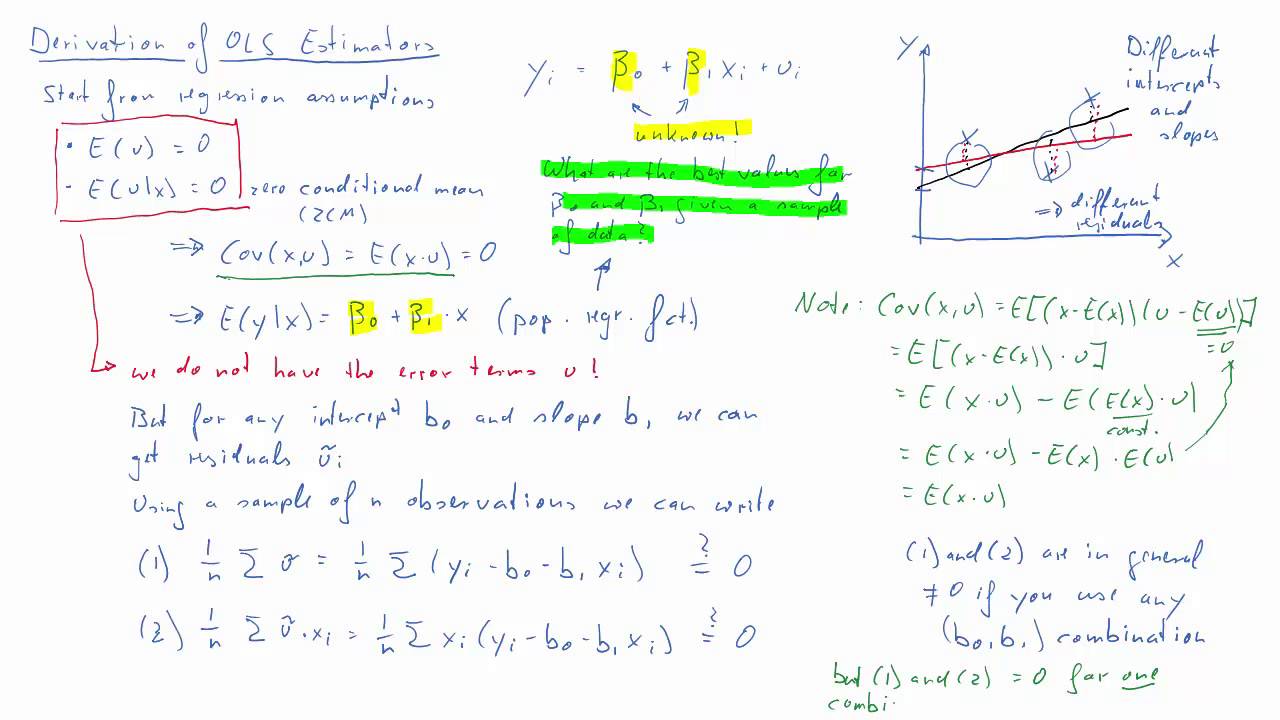 Derivation of OLS Estimators
Start from regression assumptions
• E(u) = 0
• E(u|x) = 0 zero conditional mean
(ZCM)
⇒ Cov(x,u) = E(x·u) = 0
⇒ E(y|x) = β₀ + β₁·x (pop. regr. fct.)
we do not have the error terms u!
But for any intercept b₀ and slope b₁ we can
get residuals ũᵢ
Using a sample of n observations we can write
(1) 1/n Σ ũ = 1/n Σ (yᵢ - b₀ - b₁xᵢ) ?= 0
(2) 1/n Σ ũ·xᵢ = 1/n Σ xᵢ(yᵢ - b₀ - b₁xᵢ) ?= 0
yᵢ = β₀ + β₁xᵢ + uᵢ
unknown!
What are the best values for
β₀ and β₁ given a sample
of data?
Y
X
Different
intercepts
and
slopes
⇒ different
residuals
Note: Cov(x,u) = E[(x-E(x))(u-E(u))]
= 0
= E[(x-E(x))·u]
= E(x·u) - E(E(x)·u)
const.
= E(x·u) - E(x)·E(u)
= E(x·u)
(1) and (2) are in general
≠ 0 if you use any
(b₀,b₁) combination
but (1) and (2) = 0 for one
combi